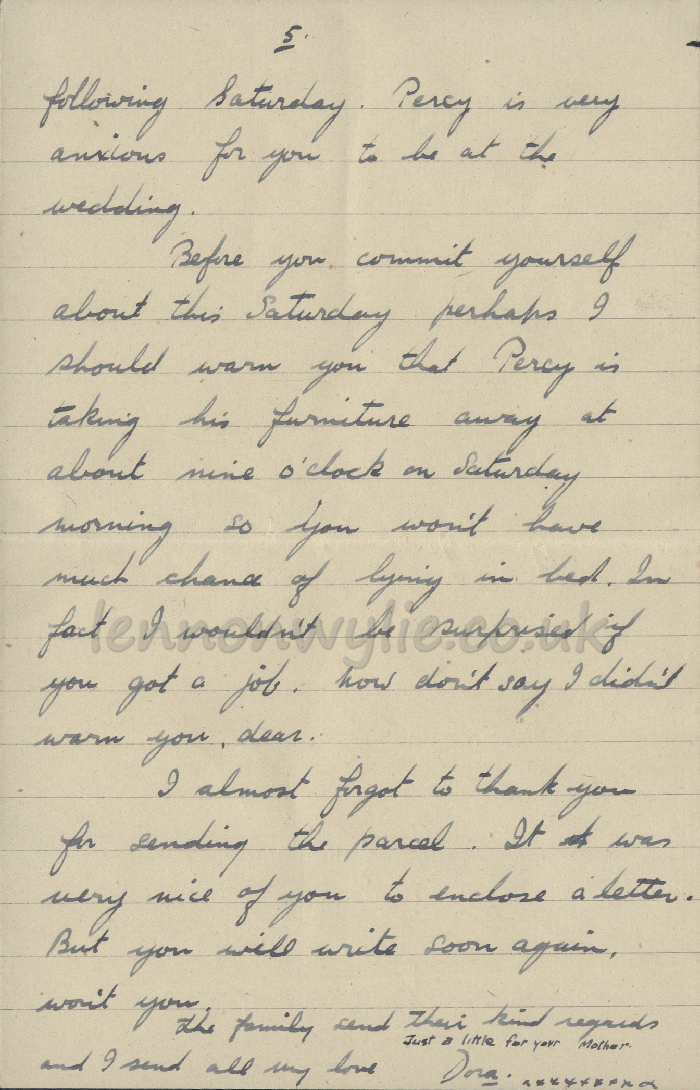 5.
following Saturday. Percy is very
anxious for you to be at the
wedding.
Before you commit yourself
about this Saturday perhaps I
should warn you that Percy is
taking his furniture away at
about nine o'clock on Saturday
morning so you won't have
much chance of lying in bed. In
fact I wouldn't be surprised if
you got a job. Now don't say I didn't
warn you, dear.
I almost forgot to thank you
for sending the parcel. It was
very nice of you to enclose a letter.
But you will write soon again,
won't you.
The family send their kind regards
Just a little for your Mother.
and I send all my love Dora. xxxxxxxx
lennonwylie.co.uk